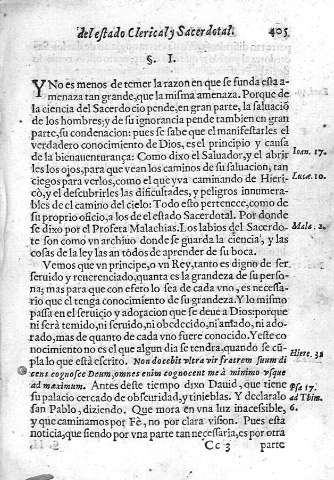 del estado Clerical, y Sacerdotal. 405
§. I.
Y No es menos de temer la razon en que se funda esta a-
menaza tan grande, que la misma amenaza. Porque de
la ciencia del Sacerdocio pende, en gran parte, la saluació
de los hombres; y de su ignorancia pende tambien en gran
parte, su condenacion: pues se sabe que el manifestarles el
verdadero conocimiento de Dios, es el principio y causa
de la bienauenturança: Como dixo el Saluador, y el abrir
les los ojos, para que vean los caminos de su saluacion, tan
ciegos para verlos, como el que vva caminando de Hieri-
có, y el descubrirles las dificultades, y peligros innumera-
bles de el camino del cielo: Todo esto pertenece, como de
su proprio oficio, a los de el estado Sacerdotal. Por donde
se dixo por el Profeta Malachias. Los labios del Sacerdo-
te son como vn archiuo donde se guarda la ciencia, y las
cosas de la ley las an todos de aprender de su boca.
Vemos que vn principe, o vn Rey, tanto es digno de ser
seruido y reuerenciado, quanta es la grandeza de su perso-
na; mas para que con efeto lo sea de cada vno, es necessa-
rio que el tenga conocimiento de su grandeza. Y lo mismo
passa en el seruicio y adoracion que se deue a Dios: porque
ni será temido, ni seruido, ni obedecido, ni amado, ni ado-
rado, mas de quanto de cada vno fuere conocido. Y este co
nocimiento no es el que algun dia se tendra, quando se cú-
pla lo que está escrito. Non docebit vltra vir fratrem suum di
cens cognosce Deum, omnes enim cognoscent me à minimo vsque
ad maximum. Antes deste tiempo dixo Dauid, que tiene
su palacio cercado de obscuridad, y tinieblas. Y declaralo
san Pablo, diziendo. Que mora en vna luz inacessible,
y que caminamos por Fè, no por clara vision. Pues esta
noticia, que siendo por vna parte tan necessaria, es por otra
Cc 3 parte
Ioan. 17.
Lucæ. 10.
Malæ. 2.
Hiere. 31
Psa 17.
ad Thim.
6.